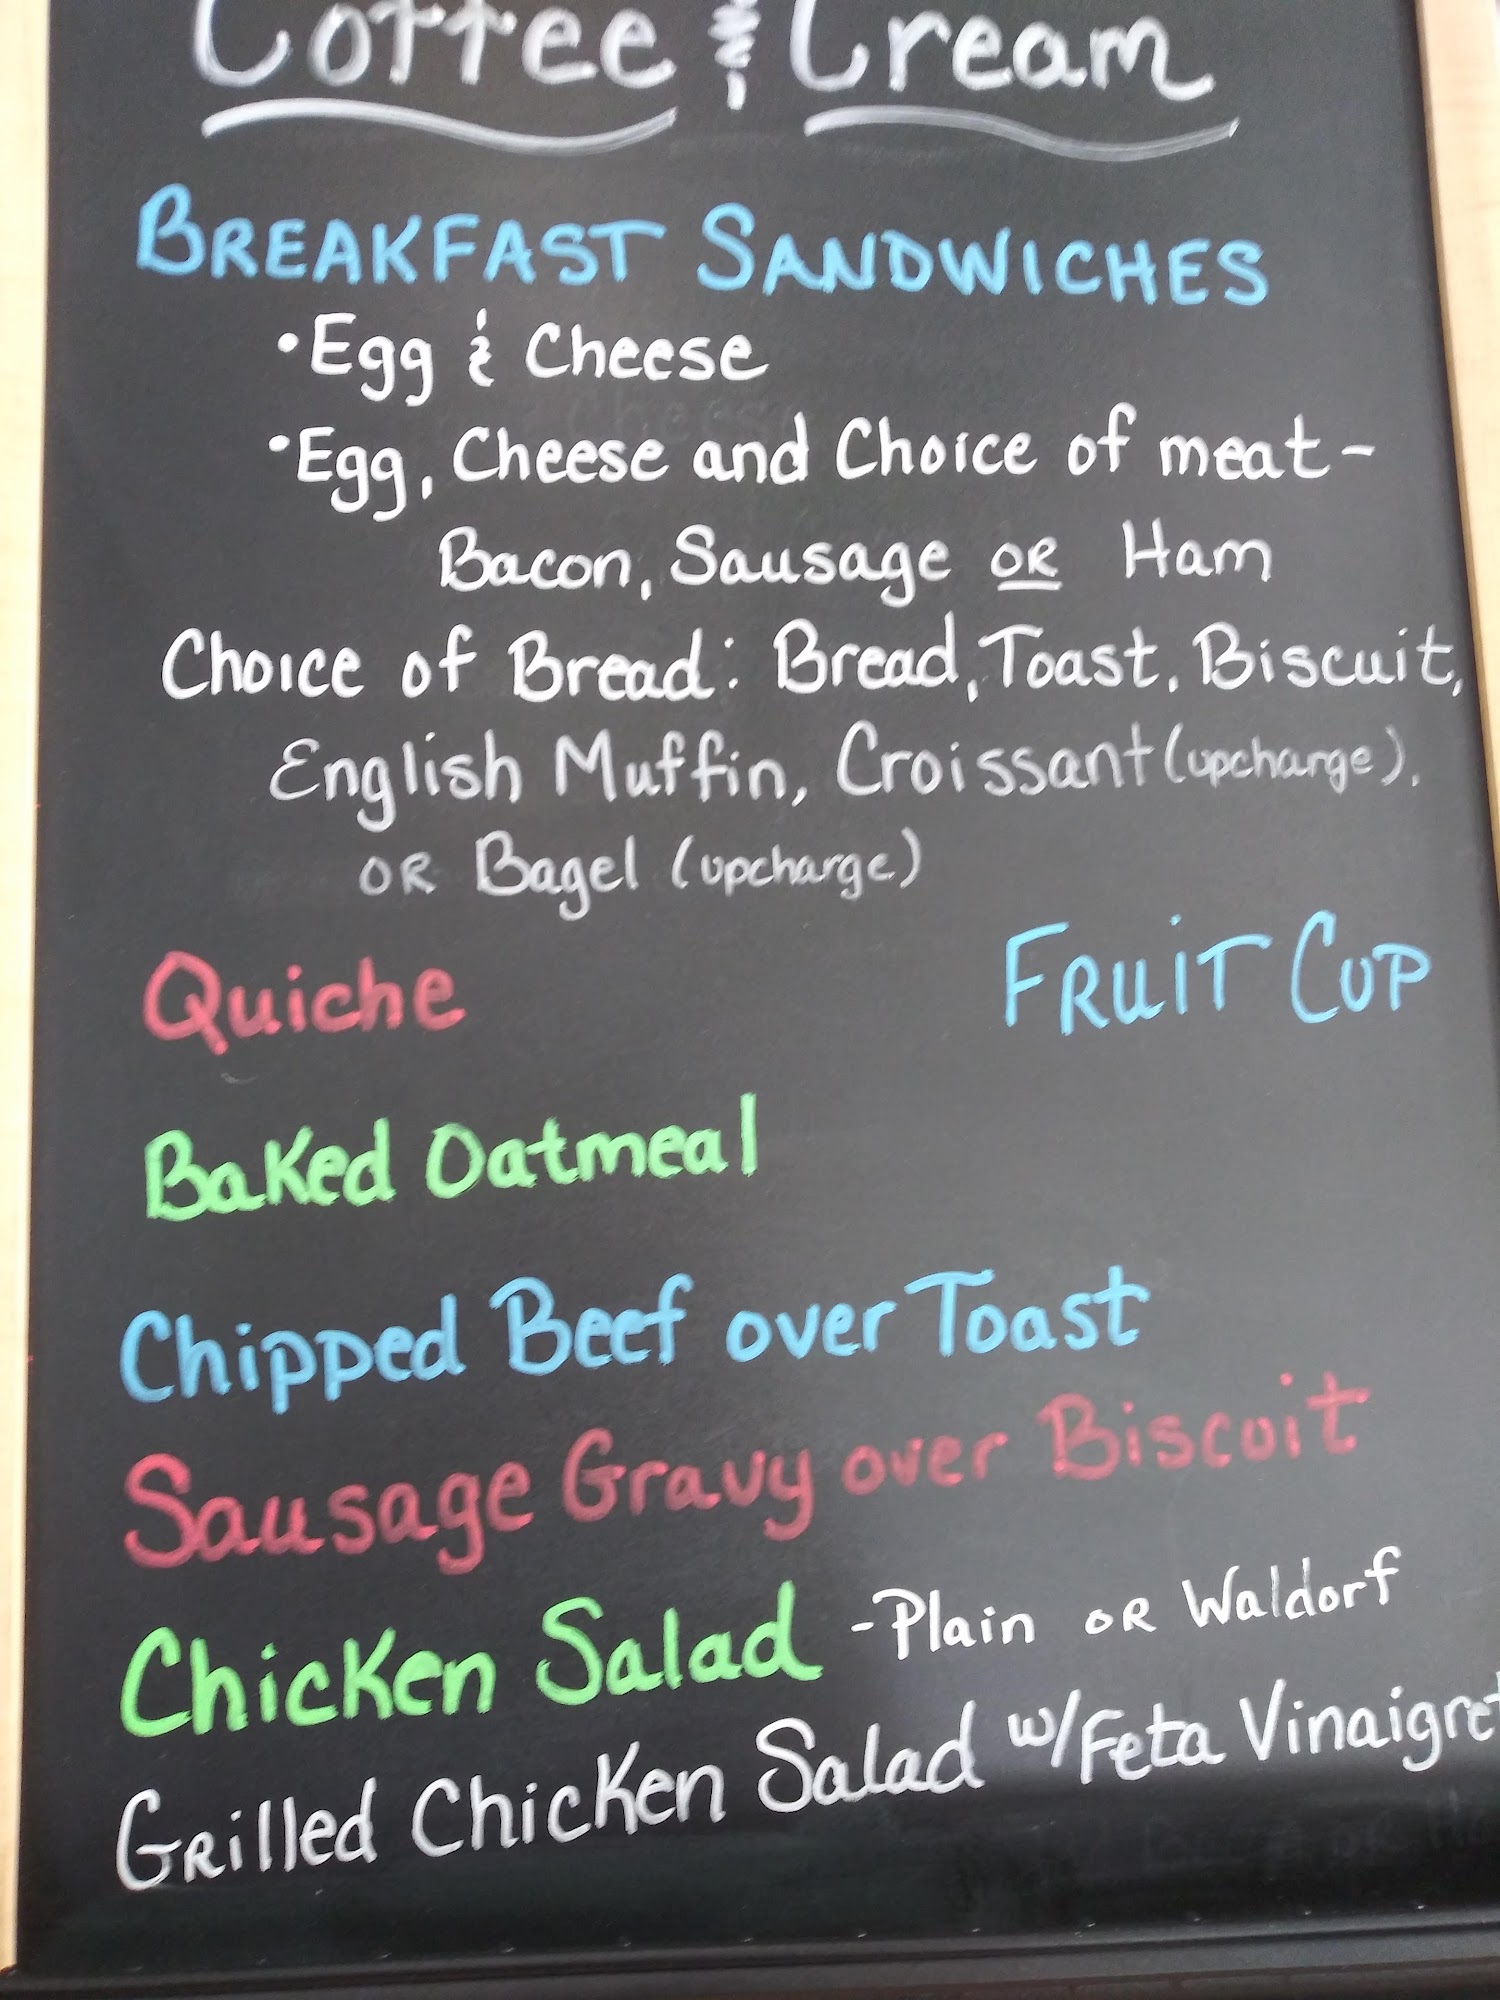 Coffee & Cream
BREAKFAST SANDWICHES
• Egg & Cheese
• Egg, Cheese and Choice of meat -
Bacon, Sausage OR Ham
Choice of Bread: Bread, Toast, Biscuit,
English Muffin, Croissant (upcharge),
OR Bagel (upcharge)
Quiche
FRUIT CUP
Baked Oatmeal
Chipped Beef over Toast
Sausage Gravy over Biscuit
Chicken Salad - Plain OR Waldorf
Grilled Chicken Salad w/Feta Vinaigret